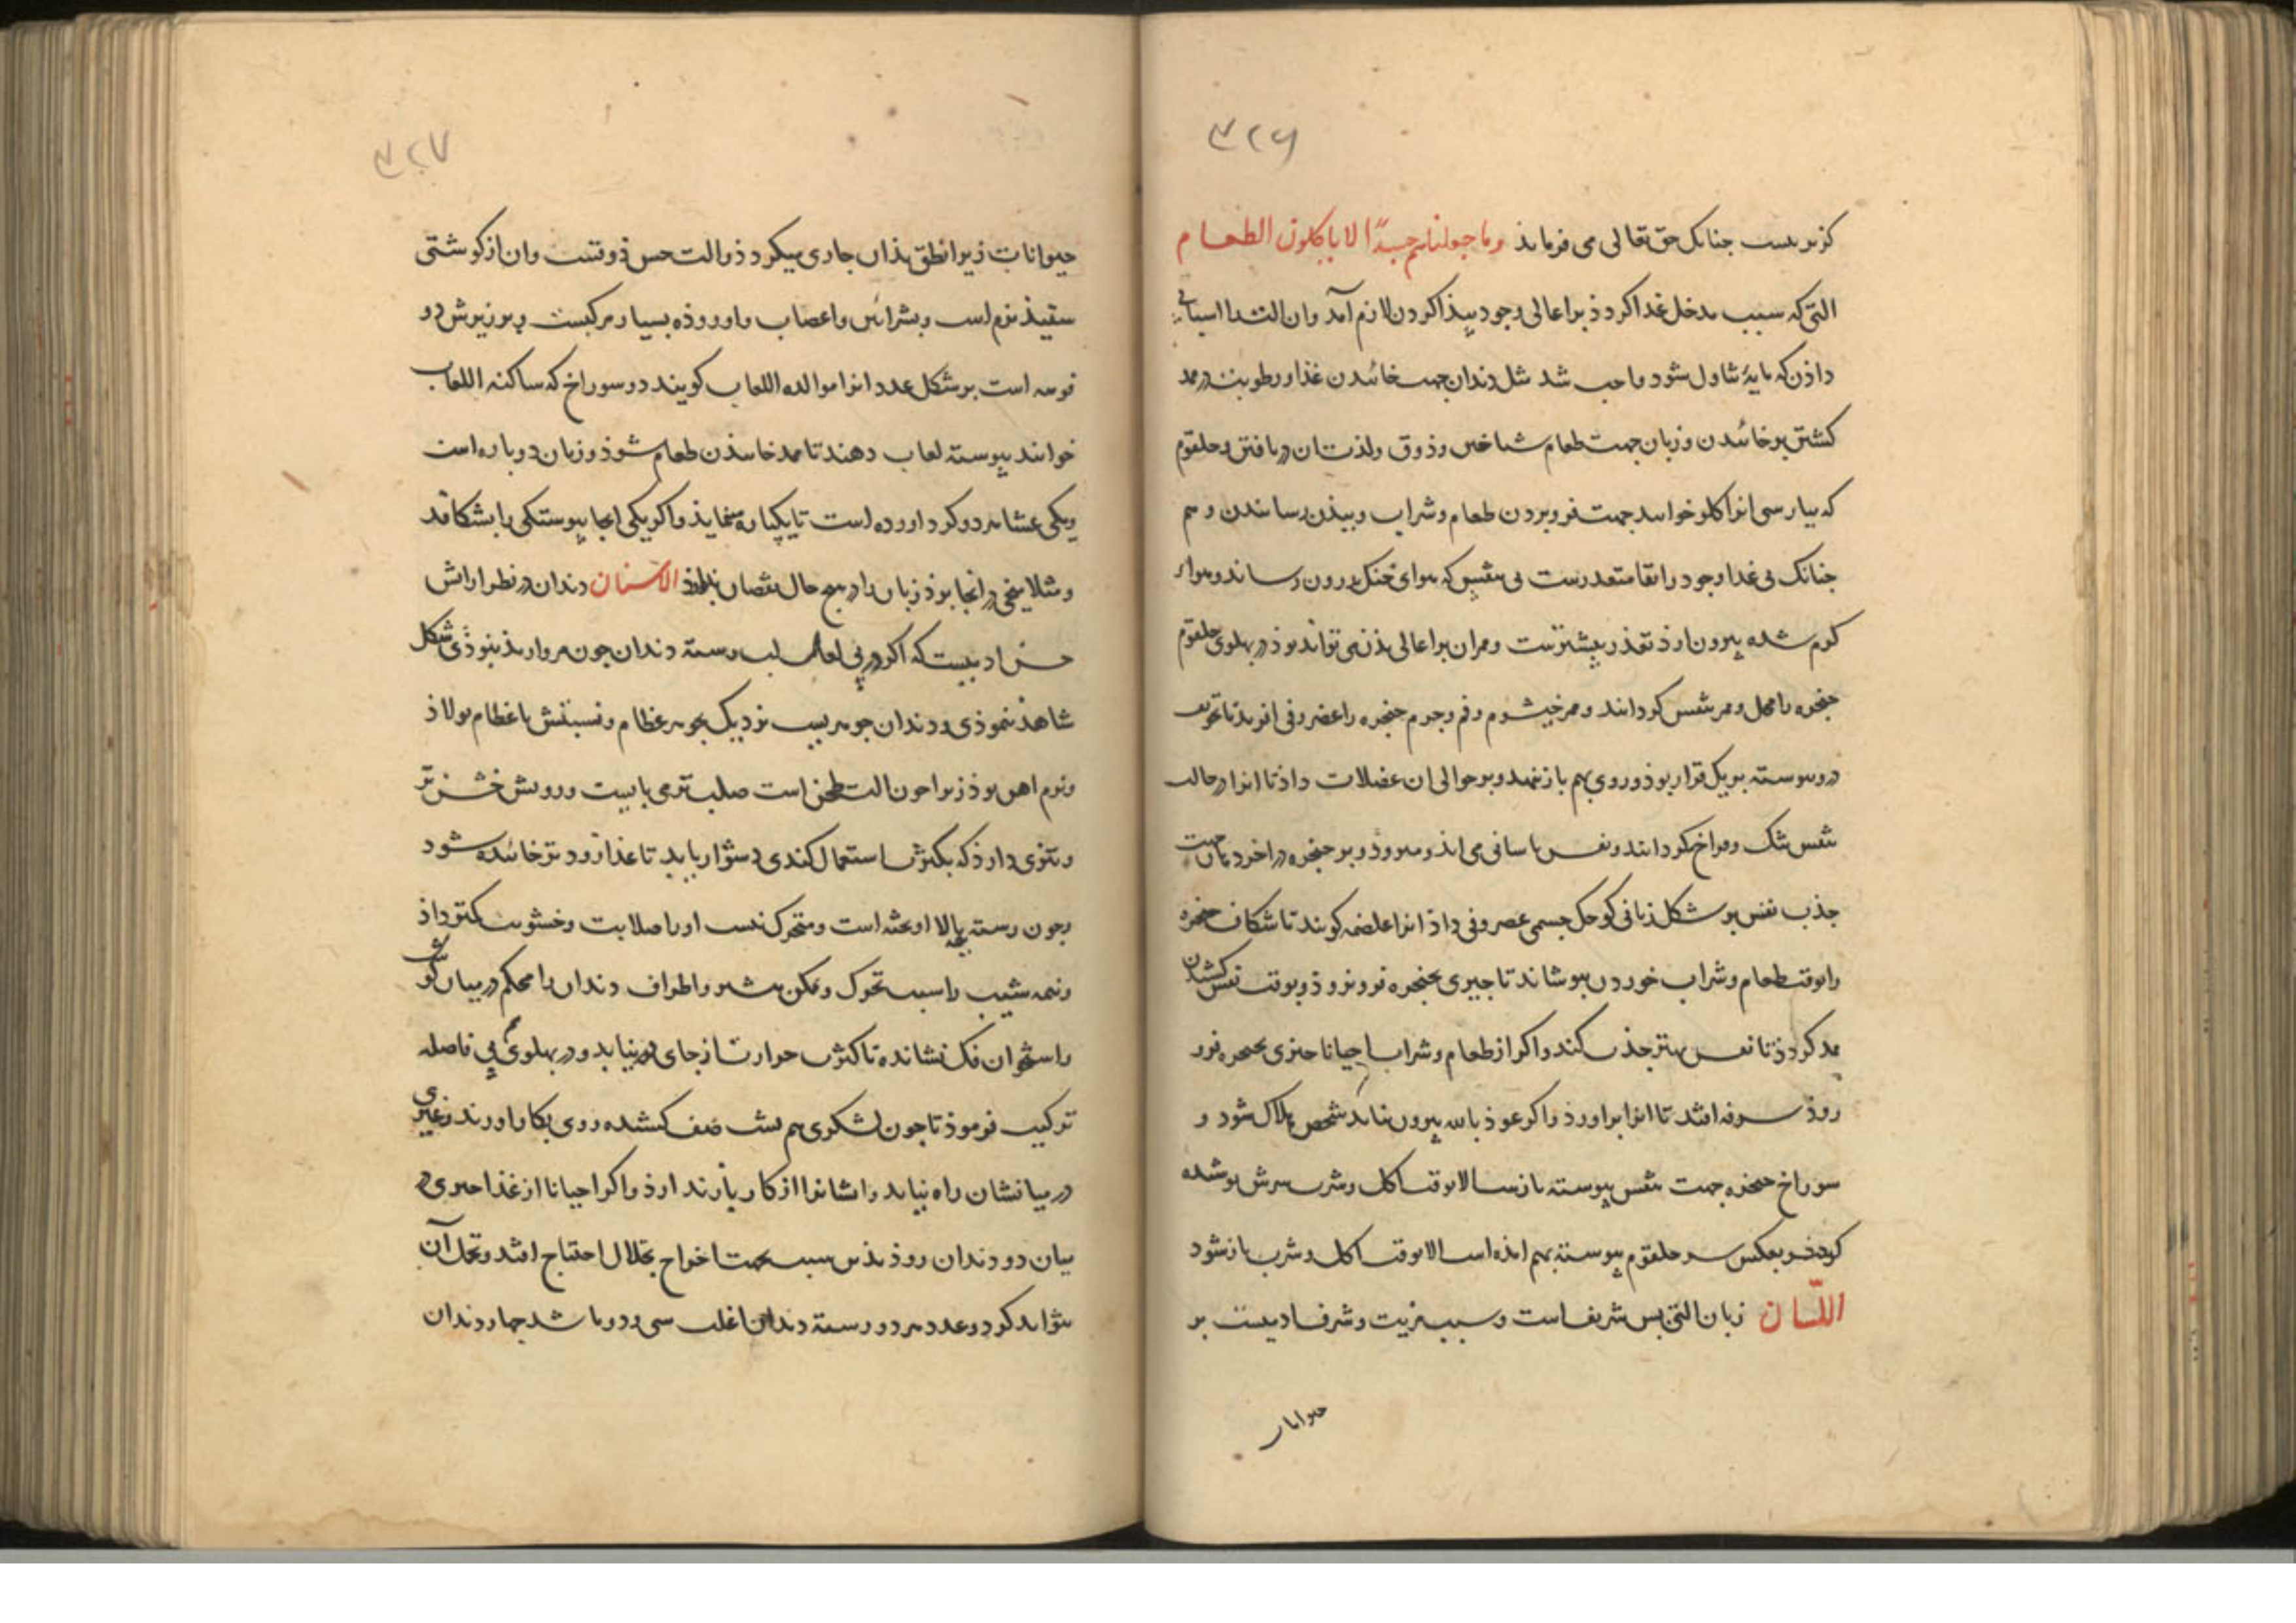 ۳۲۶
کزیر نیست جنانک حق تعالی می فرماید وما جعلناهم جسدًا لا یاکلون الطعام
التی که سبب مدخل غذا کردذ بر اعالی وجود بیذا کردن لازم آمد وان الت را اسبابی
داذن که مایهٔ تناول شود واجب شد مثل دندان جهت خائیدن غذا و رطوبت در مد
کشتن بر خائیدن و زبان جهت طعام شناختن و ذوق و لذت ان دریافتن و حلقوم
که بپارسی انرا کلو خوانند جهت فرو بردن طعام و شراب و ببذن رسانیدن و هم
جنانک بی غذا وجود را بقا متعذرست بی تنفس که هوای خنک بدرون رساند و هواء
کرم شده بیرون ارذ تعذر بیشترست و ممر ان بر اعالی بذن می تواند بوذ در بهلوی حلقوم
حنجره را محل و ممر تنفس کردانند و ممر خیشوم و فم و جرم حنجره را غضروفی افرید تا تجویف
درو بیوسته بر یک قرار بوذ و روی بهم باز ننهد و بر حوالی ان عضلات داذ تا انرا در حالت
تنفس تنک و فراخ کردانند و نفس باسانی می اید و میروذ و بر حنجره در اخر دهان جهت
جذب نفس بر شکل زبانی کوجک جسمی غضروفی داذ انرا غلصمه کویند تا شکاف حنجره
را بوقت طعام و شراب خوردن ببوشاند تا جیزی بحنجره فرو نروذ و بوقت نفس کشیدن
مد کردذ تا نفس بهتر جذب کند و اکر از طعام و شراب احیانا جیزی بحنجره فرو
روذ سرفه افتد تا انرا براورذ و اکر عوذ بالله بیرون نیاید شخص هلاک شود و
سوراخ حنجره جهت تنفس بیوسته بازست الا بوقت اکل و شرب سرش بوشیده
کردذ و بعکس سر حلقوم بیوسته بهم امذه است الا بوقت اکل و شرب باز شود
اللّسان زبان التی بس شریف است و سبب مزیت و شرف ادمیست بر
حیوانات
۳۲۷
حیوانات زیرا نطق بذان جاری میکردذ و الت حس ذوقست وان از کوشتی
سفیذ نرم است و بشرائین و اعصاب و اورده بسیار مرکبست و بر زیرش دو
فوهه است بر شکل غدد انرا مولده اللعاب کویند دو سوراخ که ساکنه اللعاب
خوانند بیوسته لعاب دهند تا ممد خائیدن طعام شوذ و زبان دو باره است
ویکی غشا هر دو کرد اورده است تا یکپاره مینماید و اکر یکی انجا بیوستکی را بشکافد
و مثلا بیخی در انجا بوذ زبان را در هیچ حال نقصان ندارد الاسنان دندان در نظر ارایش
حسن ادمیست که اکر در بی لعل لب رسته دندان جون مروارید نبوذی شکل
شاهد ننموذی و دندان جوهریست نزدیک بجوهر عظام و نسبتش با عظام بولاذ
و نرم اهن بوذ زیرا جون الت طحن است صلب تر می بایست و رویش خشن تر
و تیزی دارذ که بکثرت استعمال کندی دشوار یابد تا غذا زود تر خائیده شود
و جون رسته بالا اویخته است و متحرک نیست او را صلابت و خشونت کمتر داذ
و نیمه شیب را سبب تحرک و تمکن بیشتر و اطراف دندان را محکم در میان کوشت
و استخوان فک نشانده تا بکثرت حرارت از جای بر نیاید و در بهلوی هم بی فاصله
ترکیب فرموذ تا جون لشکری هم بشت صف کشیده روی بکار اورند و غیری
در میانشان راه نیابد و ایشانرا از کار باز ندارذ و اکر احیانا از غذا جیزی در
میان دو دندان روذ بذین سبب بجهت اخراج بخلال احتیاج افتد و تحمل آن
بتواند کرد و عدد هر دو رسته دندان اغلب سی و دو باشد جهار دندان